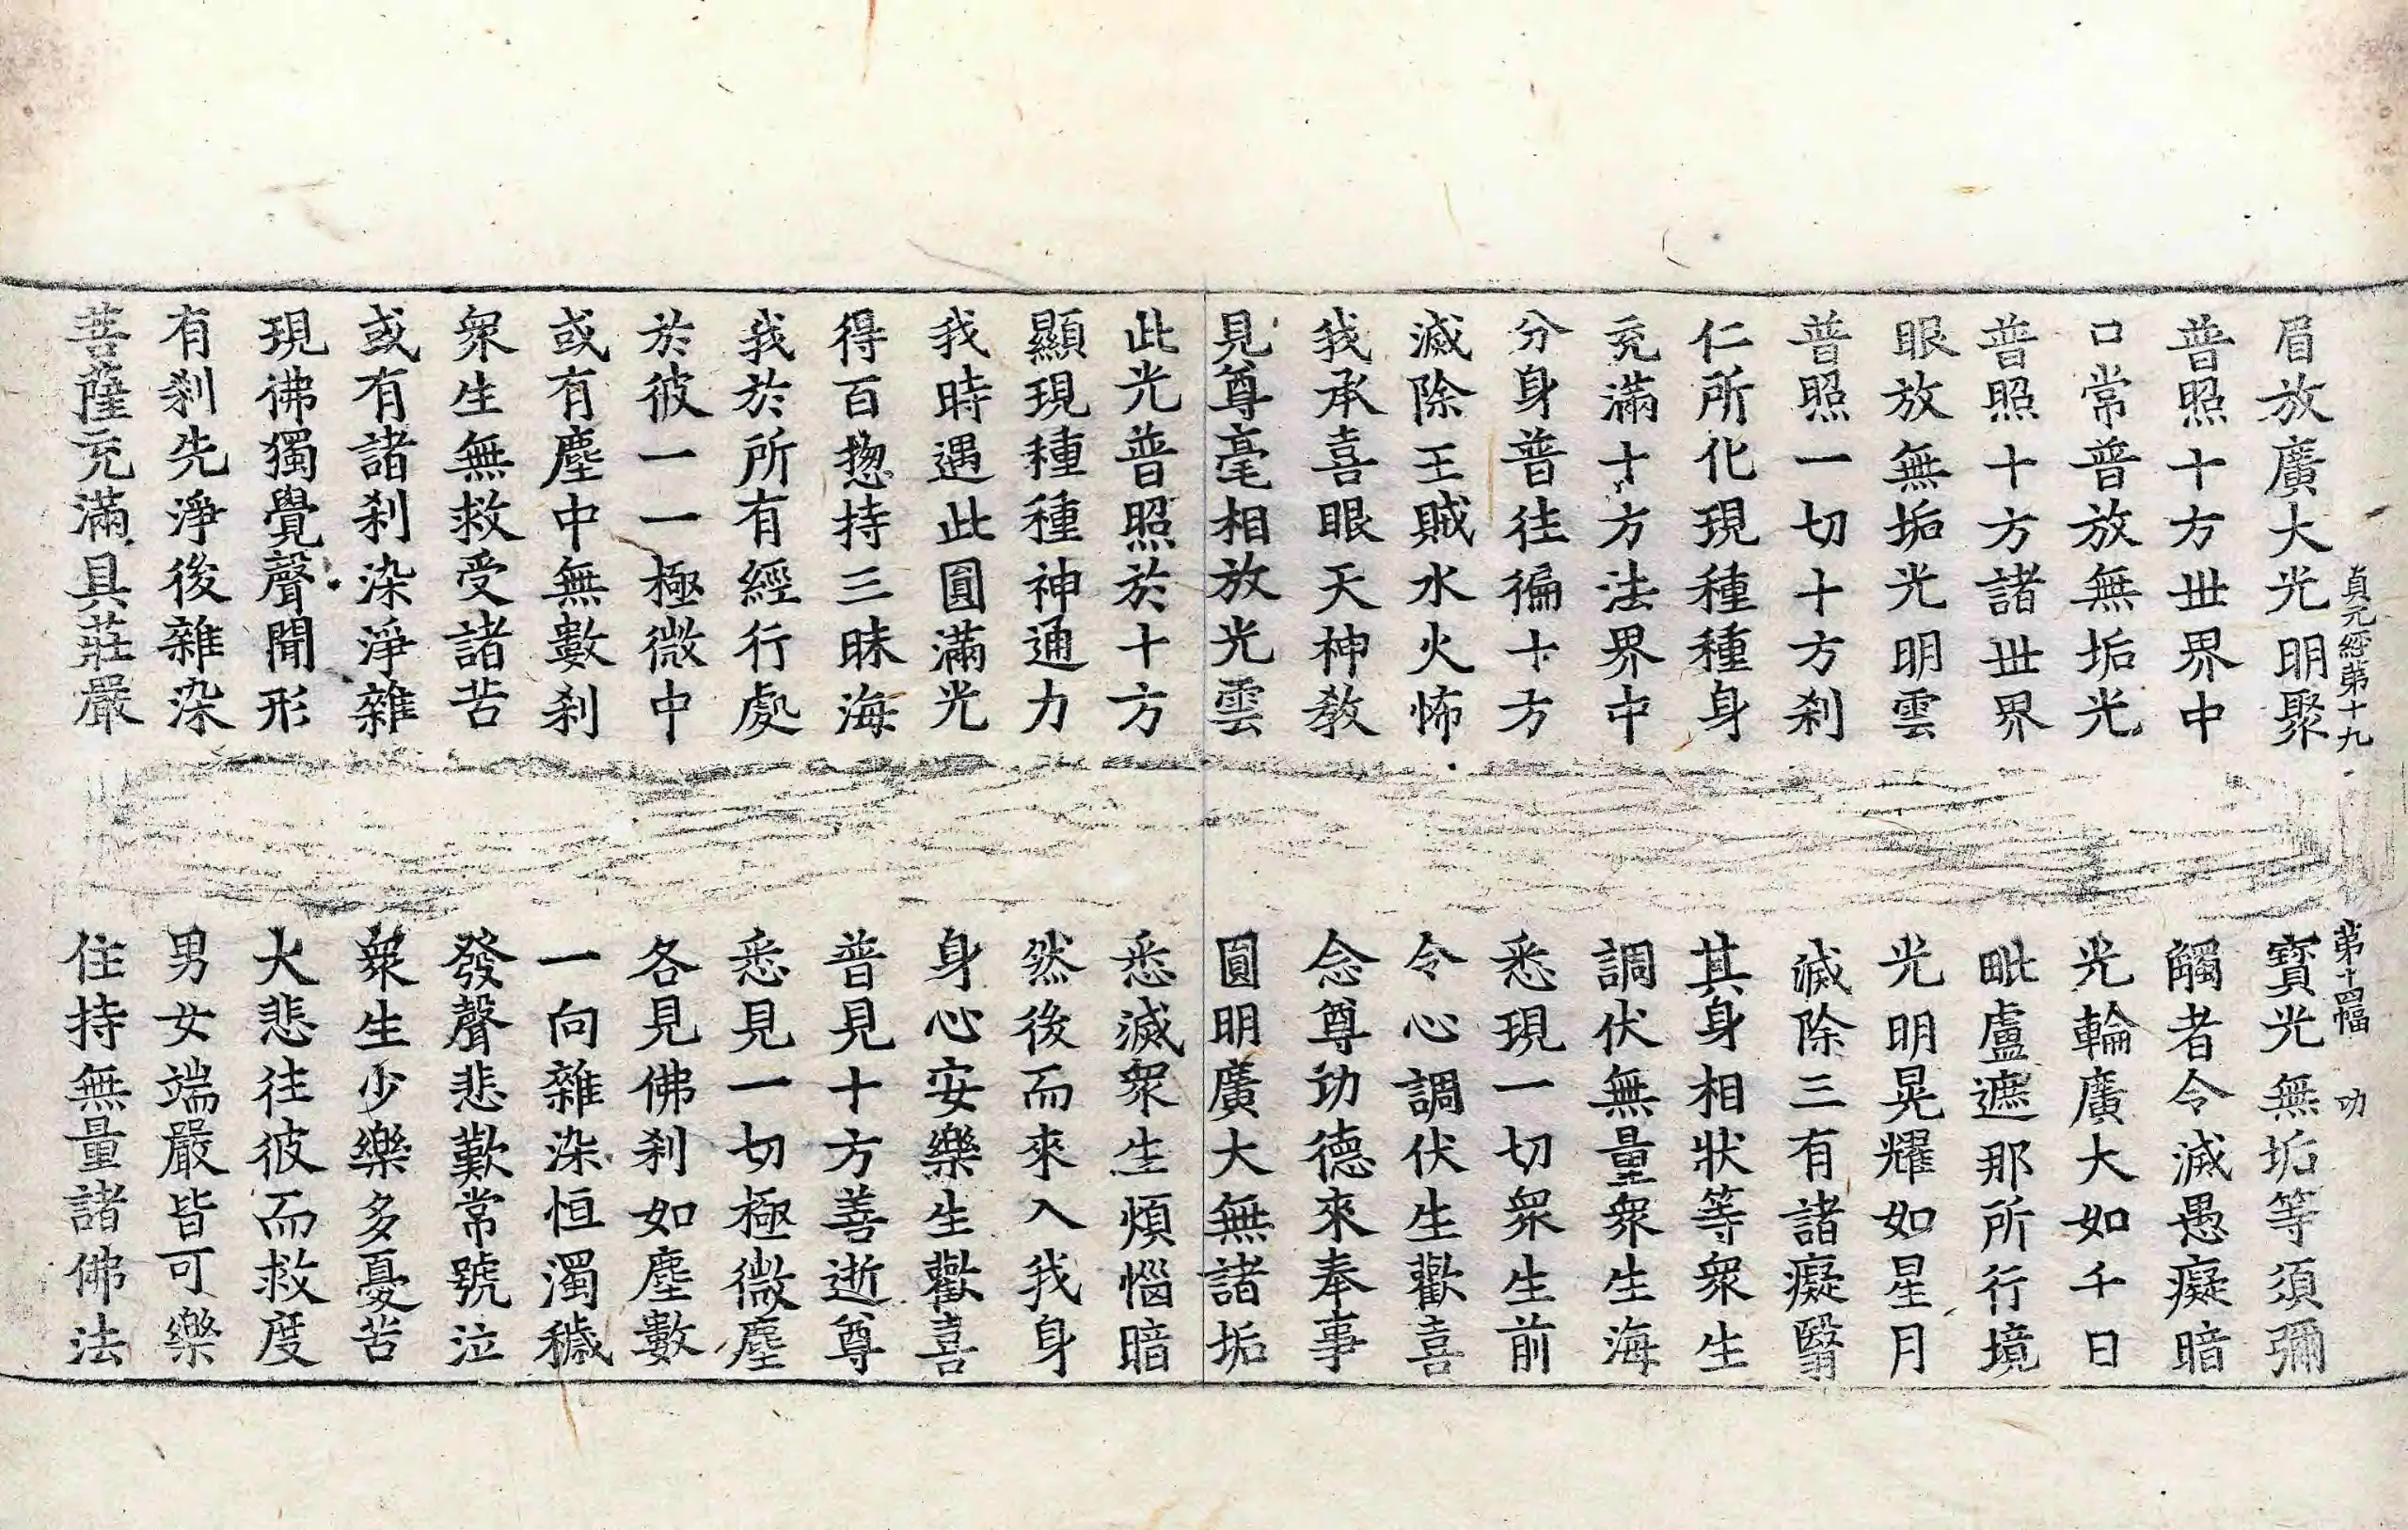 貞元經第十九 第十四幅 功
眉放廣大光明聚 寶光無垢等須彌
普照十方世界中 觸者令滅愚癡暗
口常普放無垢光 光輪廣大如千日
普照十方諸世界 毗盧遮那所行境
眼放無垢光明雲 光明晃耀如星月
普照一切十方刹 滅除三有諸癡瞖
仁所化現種種身 其身相狀等衆生
充滿十方法界中 調伏無量衆生海
分身普往徧十方 悉現一切衆生前
滅除王賊水火怖 令心調伏生歡喜
我承喜眼天神教 念尊功德來奉事
見尊毫相放光雲 圓明廣大無諸垢
此光普照於十方 悉滅衆生煩惱暗
顯現種種神通力 然後而來入我身
我時遇此圓滿光 身心安樂生歡喜
得百揔持三昧海 普見十方善逝尊
我於所有經行處 悉見一切極微塵
於彼一一極微中 各見佛刹如塵數
或有塵中無數刹 一向雜染恒濁穢
衆生無救受諸苦 發聲悲歎常號泣
或有諸刹染淨雜 衆生少樂多憂苦
現佛獨覺聲聞形 大悲往彼而救度
有刹先淨後雜染 男女端嚴皆可樂
菩薩充滿具莊嚴 住持無量諸佛法